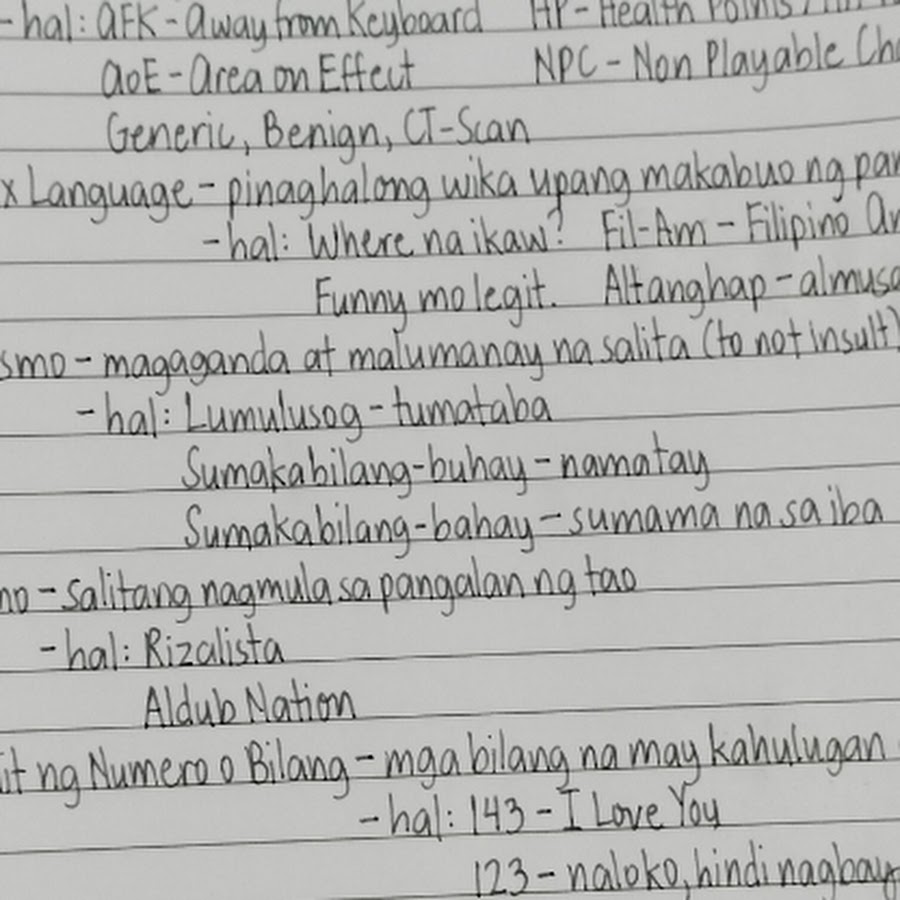 -hal: AFK - Away from Keyboard HP - Health Points
AoE - Area on Effect NPC - Non Playable
Generic, Benign, CT-Scan
x Language - pinaghalong wika upang makabuo ng
-hal: Where na ikaw? Fil-Am - Filipino
Funny mo legit. Altanghap -
smo - magaganda at malumanay na salita (to not insult)
-hal: Lumulusog - tumataba
Sumakabilang-buhay - namatay
Sumakabilang-bahay - sumama na sa iba
no - salitang nagmula sa pangalan ng tao
-hal: Rizalista
Aldub Nation
it ng Numero o Bilang - mga bilang na may kahulugan
-hal: 143 - I Love You
123 - naloko, hindi nagbay